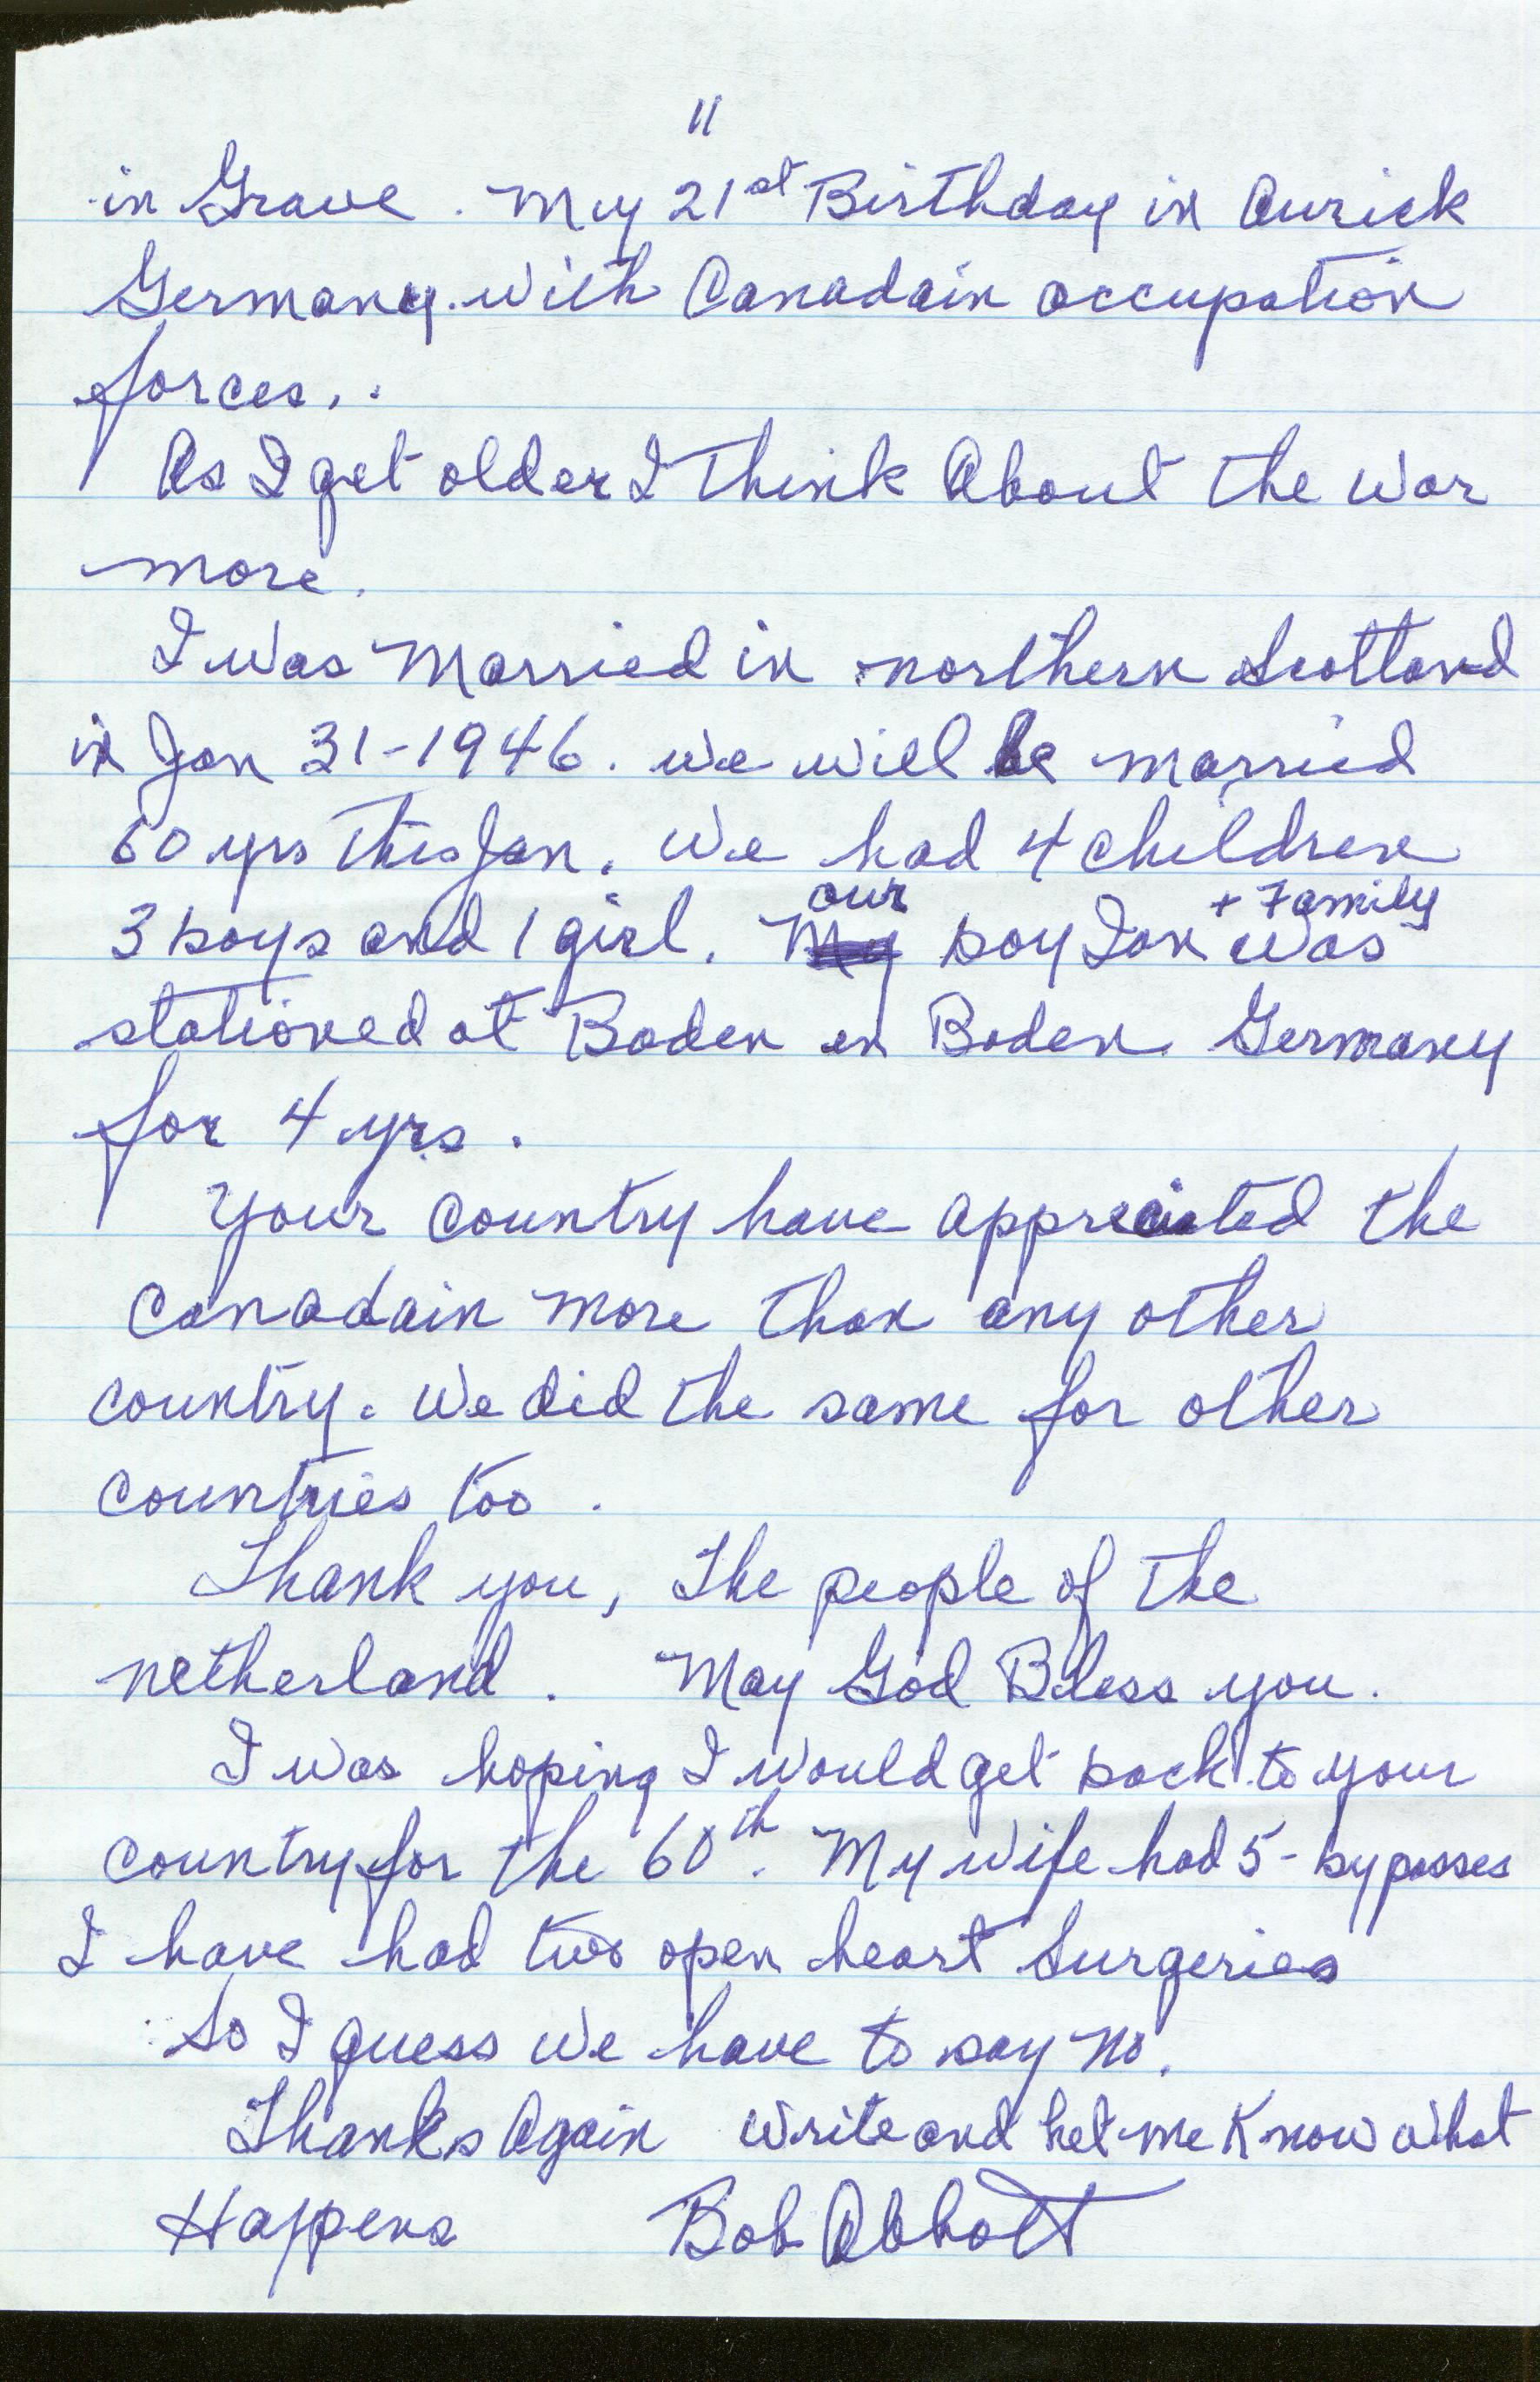 11
in Grave. My 21st Birthday in Aurick
Germany. with Canadain occupation
forces..
As I get older I think About the war
more.
I was Married in northern Scotland
in Jan 31-1946. we will be married
60 yrs this Jan. We had 4 children
our + Family
3 boys and 1 girl. My boy Ian was
stationed at Baden en Baden Germany
for 4 yrs.
Your country have appreciated the
Canadain more than any other
country. We did the same for other
countries too.
Thank you, The people of the
netherland. May God Bless you.
I was hoping I would get back to your
country for the 60th. My wife had 5-bypasses
I have had two open heart Surgeries
So I guess we have to say no.
Thanks Again Write and let me Know what
Happens Bob Abbott